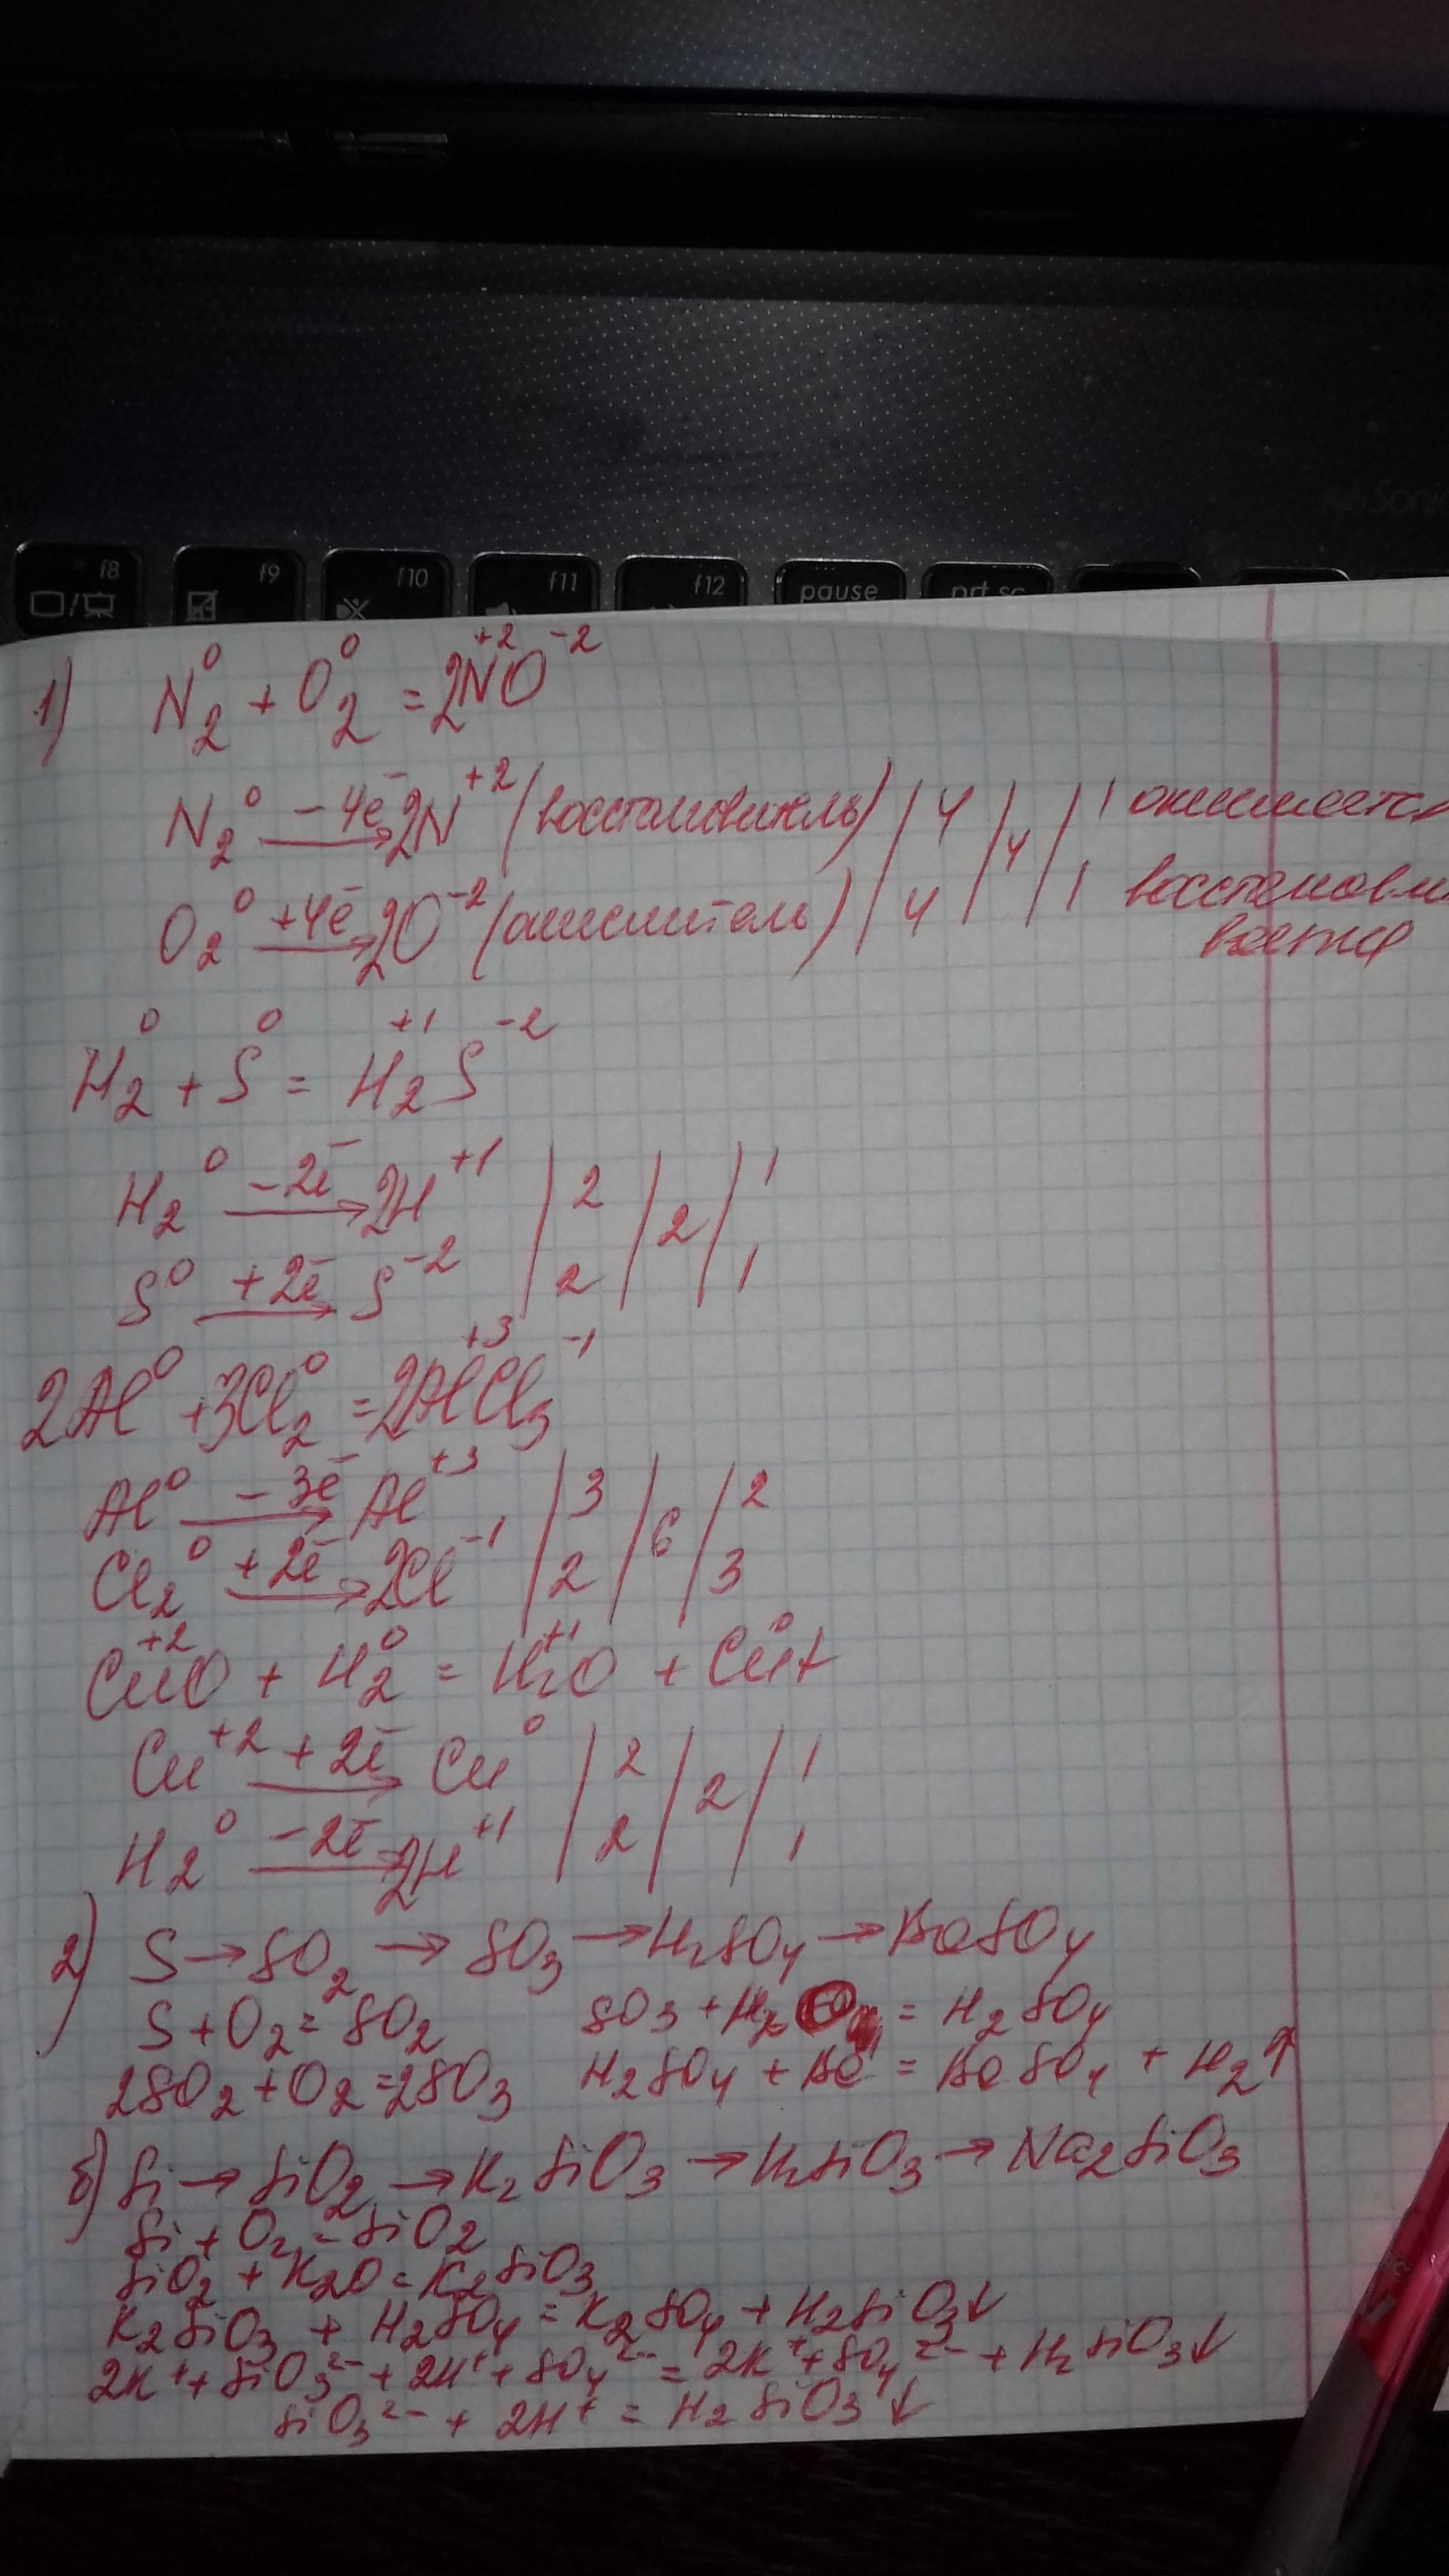 Sonic
f8 f9 f10 f11 f12 pause prt sc
1) N₂⁰ + O₂⁰ = 2N⁺²O⁻²
N₂⁰ —(−4ē)→ 2N⁺² (восстановитель) / 4 / 4 / 1 окисляется
O₂⁰ —(+4ē)→ 2O⁻² (окислитель) / 4 / / 1 восстановли
вается
H₂⁰ + S⁰ = H₂⁺¹S⁻²
H₂⁰ —(−2ē)→ 2H⁺¹ / 2 / 2 / 1
S⁰ —(+2ē)→ S⁻² / 2 / / 1
2Al⁰ + 3Cl₂⁰ = 2Al⁺³Cl₃⁻¹
Al⁰ —(−3ē)→ Al⁺³ / 3 / 6 / 2
Cl₂⁰ —(+2ē)→ 2Cl⁻¹ / 2 / / 3
Cu⁺²O + H₂⁰ = H₂⁺¹O + Cu⁰
Cu⁺² —(+2ē)→ Cu⁰ / 2 / 2 / 1
H₂⁰ —(−2ē)→ 2H⁺¹ / 2 / / 1
2) S → SO₂ → SO₃ → H₂SO₄ → BaSO₄
S + O₂ = SO₂ SO₃ + H₂O = H₂SO₄
2SO₂ + O₂ = 2SO₃ H₂SO₄ + Ba = BaSO₄ + H₂↑
б) Si → SiO₂ → K₂SiO₃ → H₂SiO₃ → Na₂SiO₃
Si + O₂ = SiO₂
SiO₂ + K₂O = K₂SiO₃
K₂SiO₃ + H₂SO₄ = K₂SO₄ + H₂SiO₃↓
2K⁺ + SiO₃²⁻ + 2H⁺ + SO₄²⁻ = 2K⁺ + SO₄²⁻ + H₂SiO₃↓
SiO₃²⁻ + 2H⁺ = H₂SiO₃↓